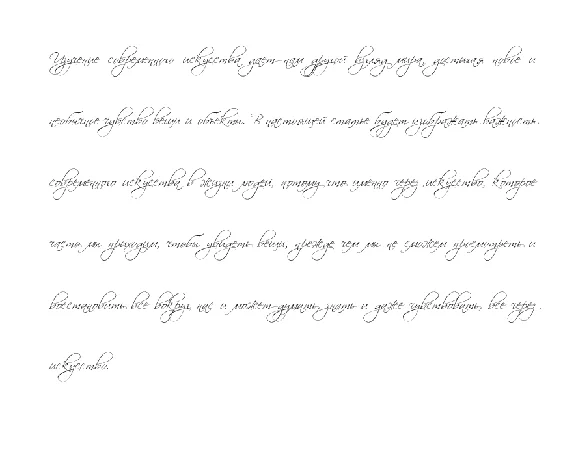 Изучение современного искусства дает нам другой взгляд мира, достигая новые и
необычные чувства вещи и объекты. В настоящей статье будет изображать важность
современного искусства в жизни людей, потому что именно через искусство, которое
часть мы приходим, чтобы увидеть вещи, прежде чем мы не сможем просмотреть и
восстановить все вокруг нас и может думать, знать и даже чувствовать, все через
искусство.